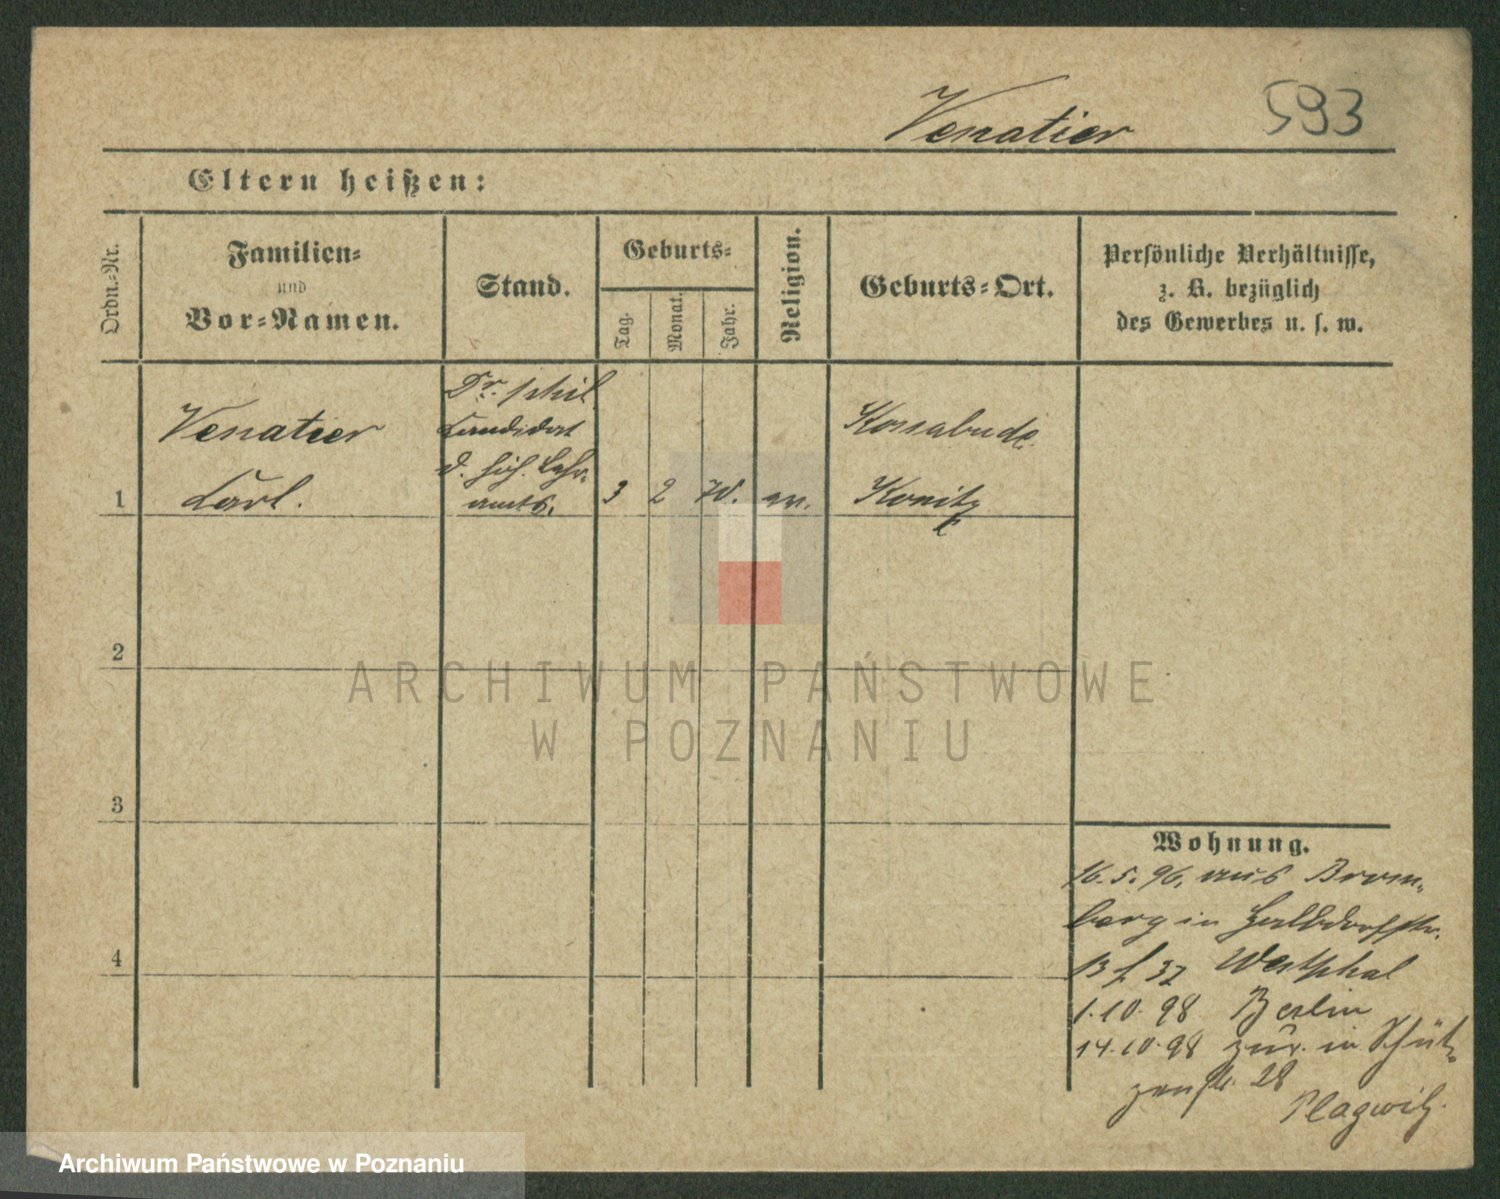 Venatier 593
Eltern heißen:
Ordn.-Nr.
Familien-
und
Vor-Namen.
Stand.
Geburts-
Tag.
Monat.
Jahr.
Religion.
Geburts-Ort.
Persönliche Verhältnisse,
z. B. bezüglich
des Gewerbes u. s. w.
1
Venatier
Carl.
Dr. phil
Candidat
d. höh. Lehr-
amts.
3 2 70. ev.
Kossabude
Konitz
2
3
4
Wohnung.
16.5.96. aus Brom-
berg in Halbdorfstr.
13 f 37 Westphal
1.10.98 Berlin
14.10.98 zur. in Schüt-
zenstr. 28
Plagwitz
ARCHIWUM PAŃSTWOWE
W POZNANIU
Archiwum Państwowe w Poznaniu